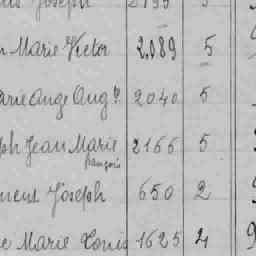 Joseph 2195 5
Marie Victor 2.089 5
Marie Ange Aug.te 2040 5
Joseph Jean Marie 2166 5
françois
Joseph 650 2
Marie Louis 1625 4